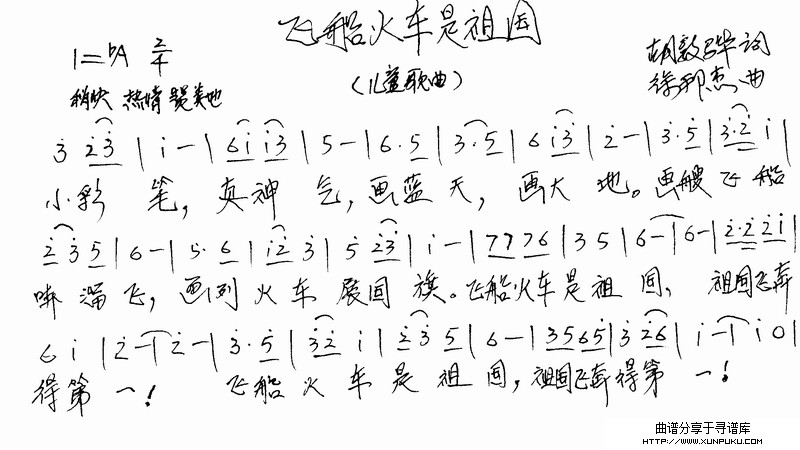 飞船火车是祖国
1=bA 2/4
(儿童歌曲)
胡敦骅词
稍快 热情 赞美地
徐邦杰曲
3 2̇3̇ | i - | 6i i3̇ | 5 - | 6·5 | 3·5 | 6 i3̇ | 2̇ - | 3̇·5̇ | 3̇·2̇ i |
小彩 笔, 真神 气, 画蓝 天, 画大 地。画艘飞船
2̇ 3̇ 5 | 6 - | 5·6 | i2̇ 3̇ | 5 2̇3̇ | i - | 77 76 | 3 5 | 6 - | 6 - | 2̇·2̇ 2̇i |
嗨 溜 飞, 画列 火 车 展国 旗。飞船火车是 祖 国, 祖国飞奔
6 i | 2̇ - | 2̇ - | 3̇·5̇ | 3̇2̇ i | 2̇ 3̇ 5 | 6 - | 3565 | 3̇ 2̇6 | i - | i 0 |
得第 一! 飞船 火 车 是 祖 国, 祖国飞奔得第 一!
曲谱分享于寻谱库
HTTP://WWW.XUNPUKU.COM